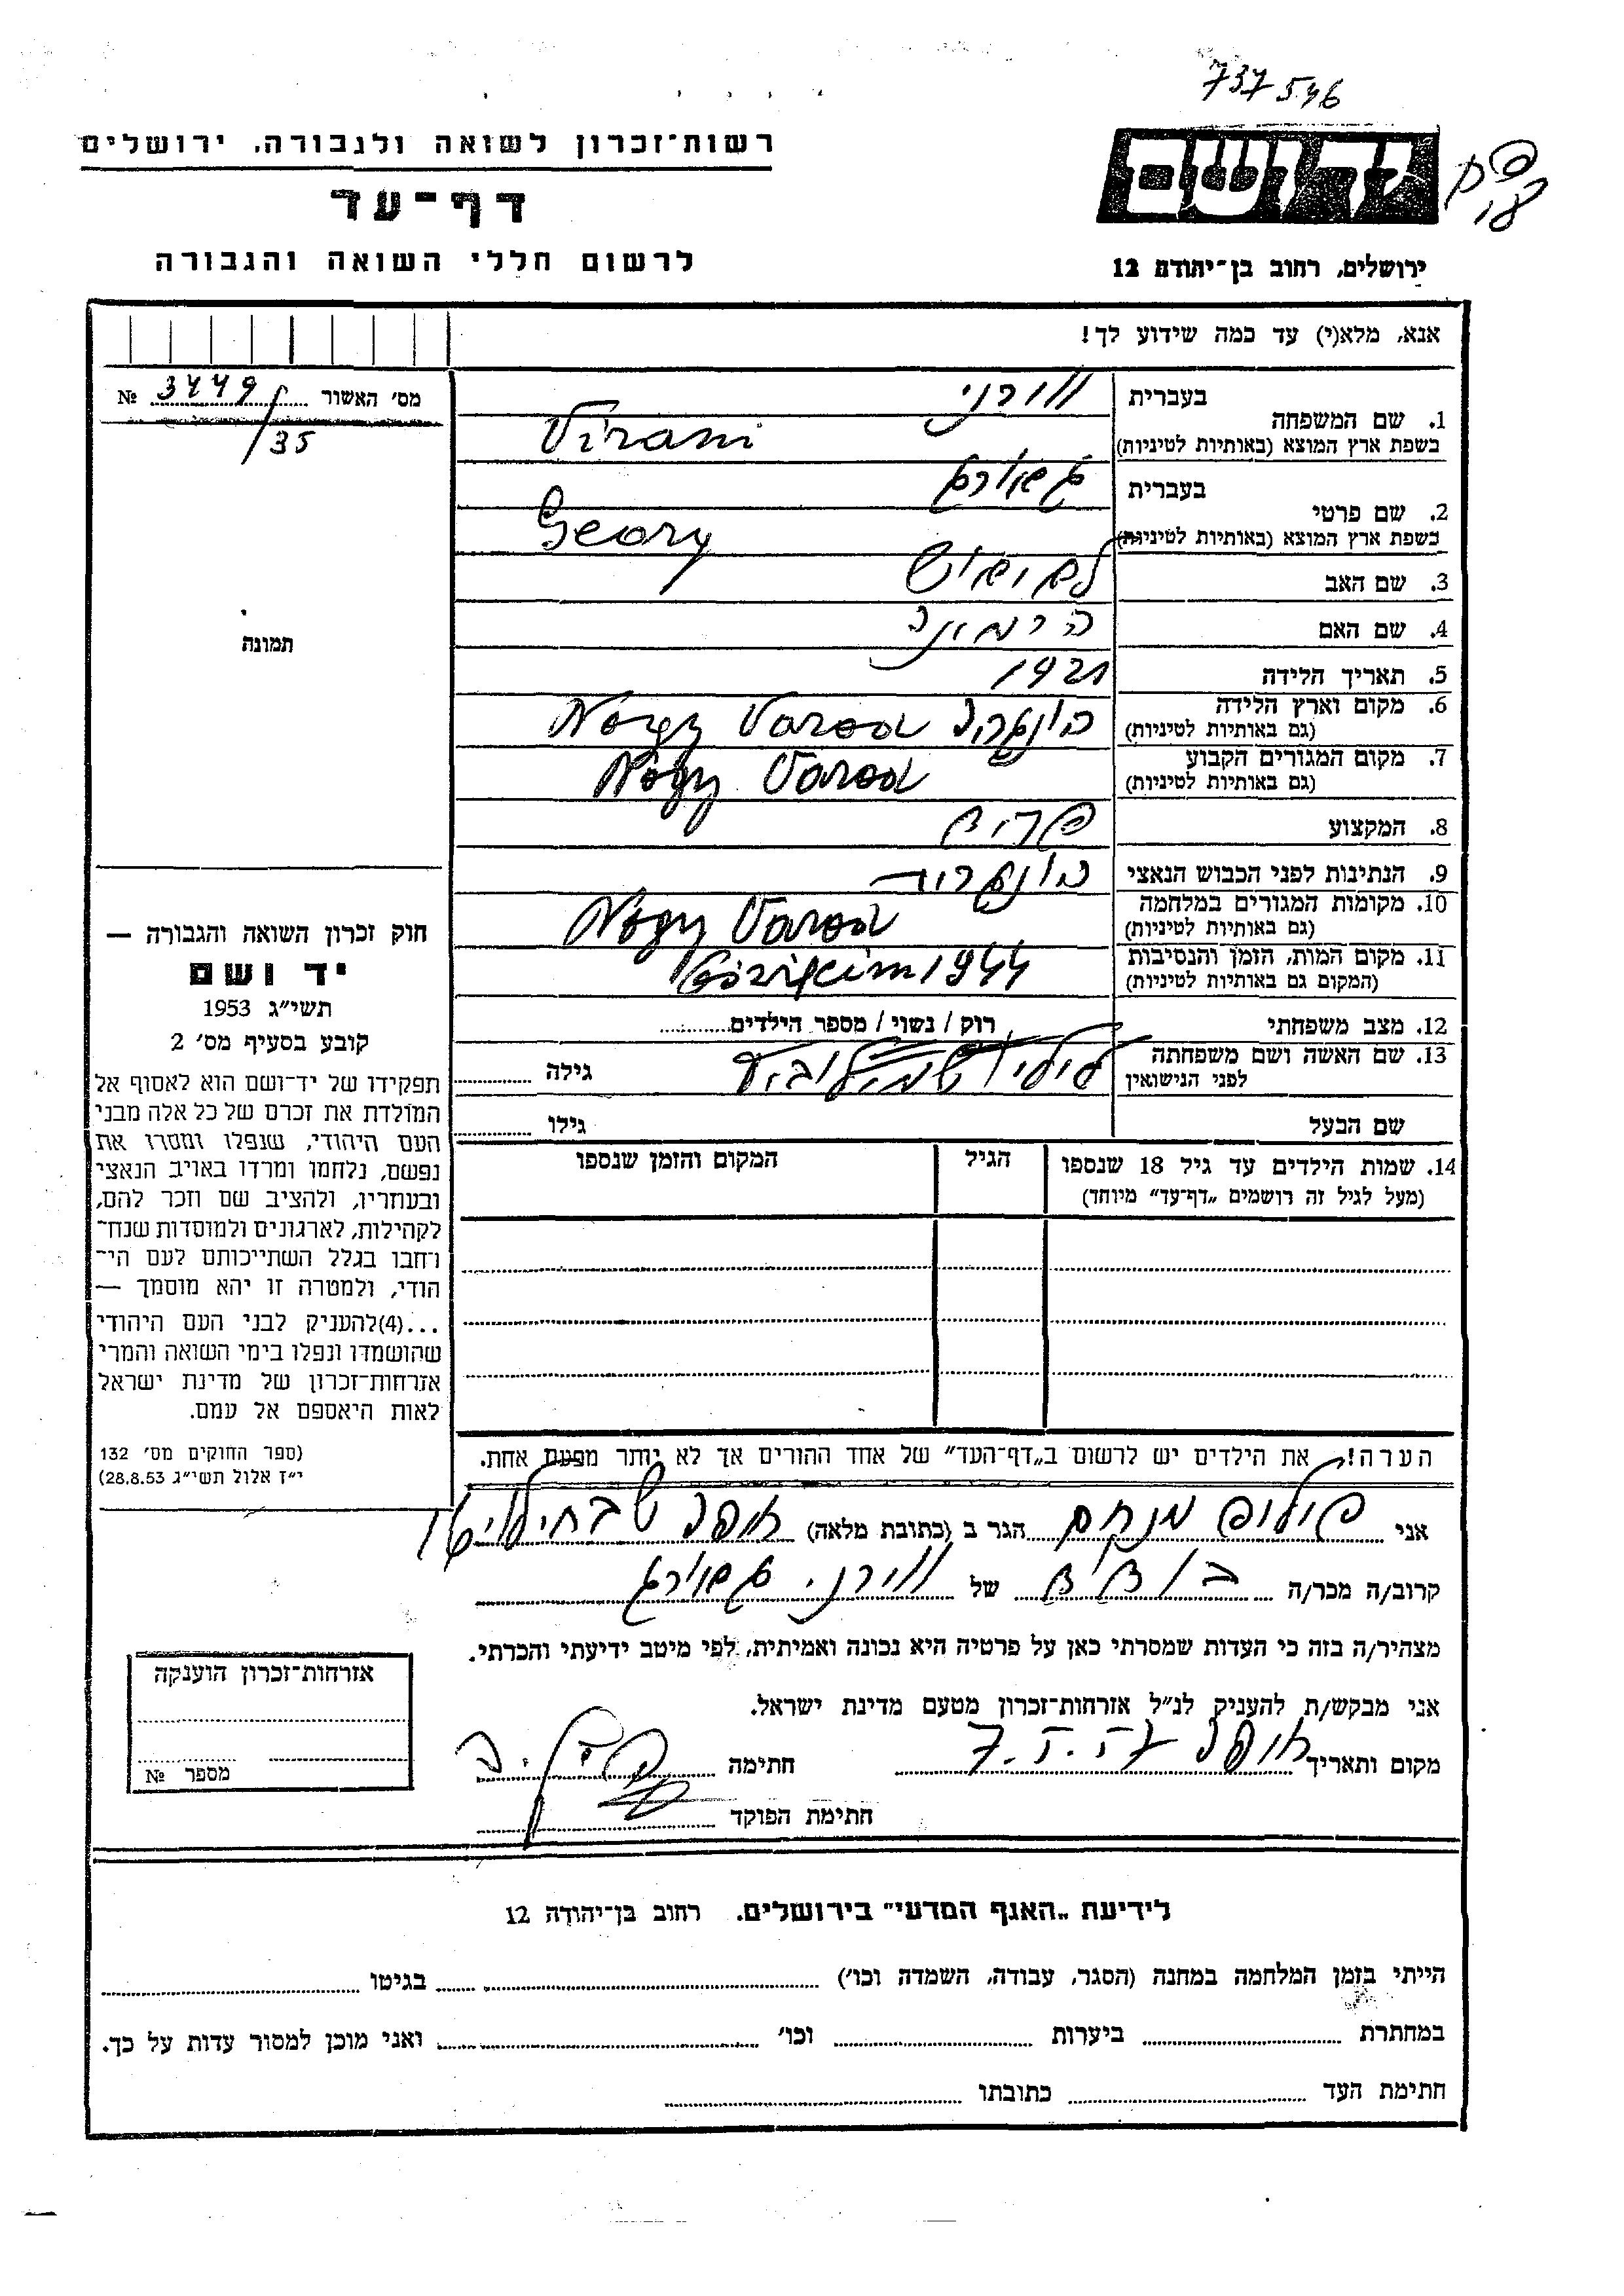 737546
רשות־זכרון לשואה ולגבורה, ירושלים
דף־עד
לרשום חללי השואה והגבורה
יד ושם
ירושלים, רחוב בן־יהודה 12
אנא, מלא(י) עד כמה שידוע לך!
מס׳ האשור 3449 №
/35
תמונה
1. שם המשפחה
בעברית ווירני
בשפת ארץ המוצא (באותיות לטיניות) Virani
2. שם פרטי
בעברית
בשפת ארץ המוצא (באותיות לטיניות) Georg
3. שם האב
4. שם האם
5. תאריך הלידה 1921
6. מקום וארץ הלידה
(גם באותיות לטיניות) הונגריה Nagy Varad
7. מקום המגורים הקבוע
(גם באותיות לטיניות) Nagy Varad
8. המקצוע
9. הנתינות לפני הכבוש הנאצי הונגרית
10. מקומות המגורים במלחמה
(גם באותיות לטיניות) Nagy Varad
11. מקום המות, הזמן והנסיבות
(המקום גם באותיות לטיניות) 1944
12. מצב משפחתי רוק / נשוי / מספר הילדים
13. שם האשה ושם משפחתה
לפני הנישואין גילה
שם הבעל גילו
14. שמות הילדים עד גיל 18 שנספו הגיל המקום והזמן שנספו
(מעל לגיל זה רושמים „דף־עד” מיוחד)
הערה! את הילדים יש לרשום ב„דף־העד” של אחד ההורים אך לא יותר מפעם אחת.
חוק זכרון השואה והגבורה —
יד ושם
תשי״ג 1953
קובע בסעיף מס׳ 2
תפקידו של יד־ושם הוא לאסוף אל
המולדת את זכרם של כל אלה מבני
העם היהודי, שנפלו ומסרו את
נפשם, נלחמו ומרדו באויב הנאצי
ובעוזריו, ולהציב שם וזכר להם,
לקהילות, לארגונים ולמוסדות שנח־
רבו בגלל השתייכותם לעם הי־
הודי, ולמטרה זו יהא מוסמך —
...(4)להעניק לבני העם היהודי
שהושמדו ונפלו בימי השואה והמרי
אזרחות־זכרון של מדינת ישראל
לאות היאספם אל עמם.
(ספר החוקים מס׳ 132
י״ז אלול תשי״ג 28.8.53)
אני מנחם הגר ב (כתובת מלאה)
קרוב/ה מכר/ה של ווירני
מצהיר/ה בזה כי העדות שמסרתי כאן על פרטיה היא נכונה ואמיתית, לפי מיטב ידיעתי והכרתי.
אני מבקש/ת להעניק לנ״ל אזרחות־זכרון מטעם מדינת ישראל.
מקום ותאריך חתימה
חתימת הפוקד
אזרחות־זכרון הוענקה
מספר №
לידיעת „האגף המדעי” בירושלים. רחוב בן־יהודה 12
הייתי בזמן המלחמה במחנה (הסגר, עבודה, השמדה וכו׳) בגיטו
במחתרת ביערות וכו׳ ואני מוכן למסור עדות על כך.
חתימת העד כתובתו